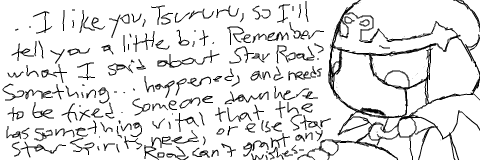 ...I like you, Tsururu, so I'll
tell you a little bit. Remember
what I said about Star Road?
Something... happened, and needs
to be fixed. Someone down here
has something vital that the
Star Spirits need, or else Star
Road can't grant any
wishes-